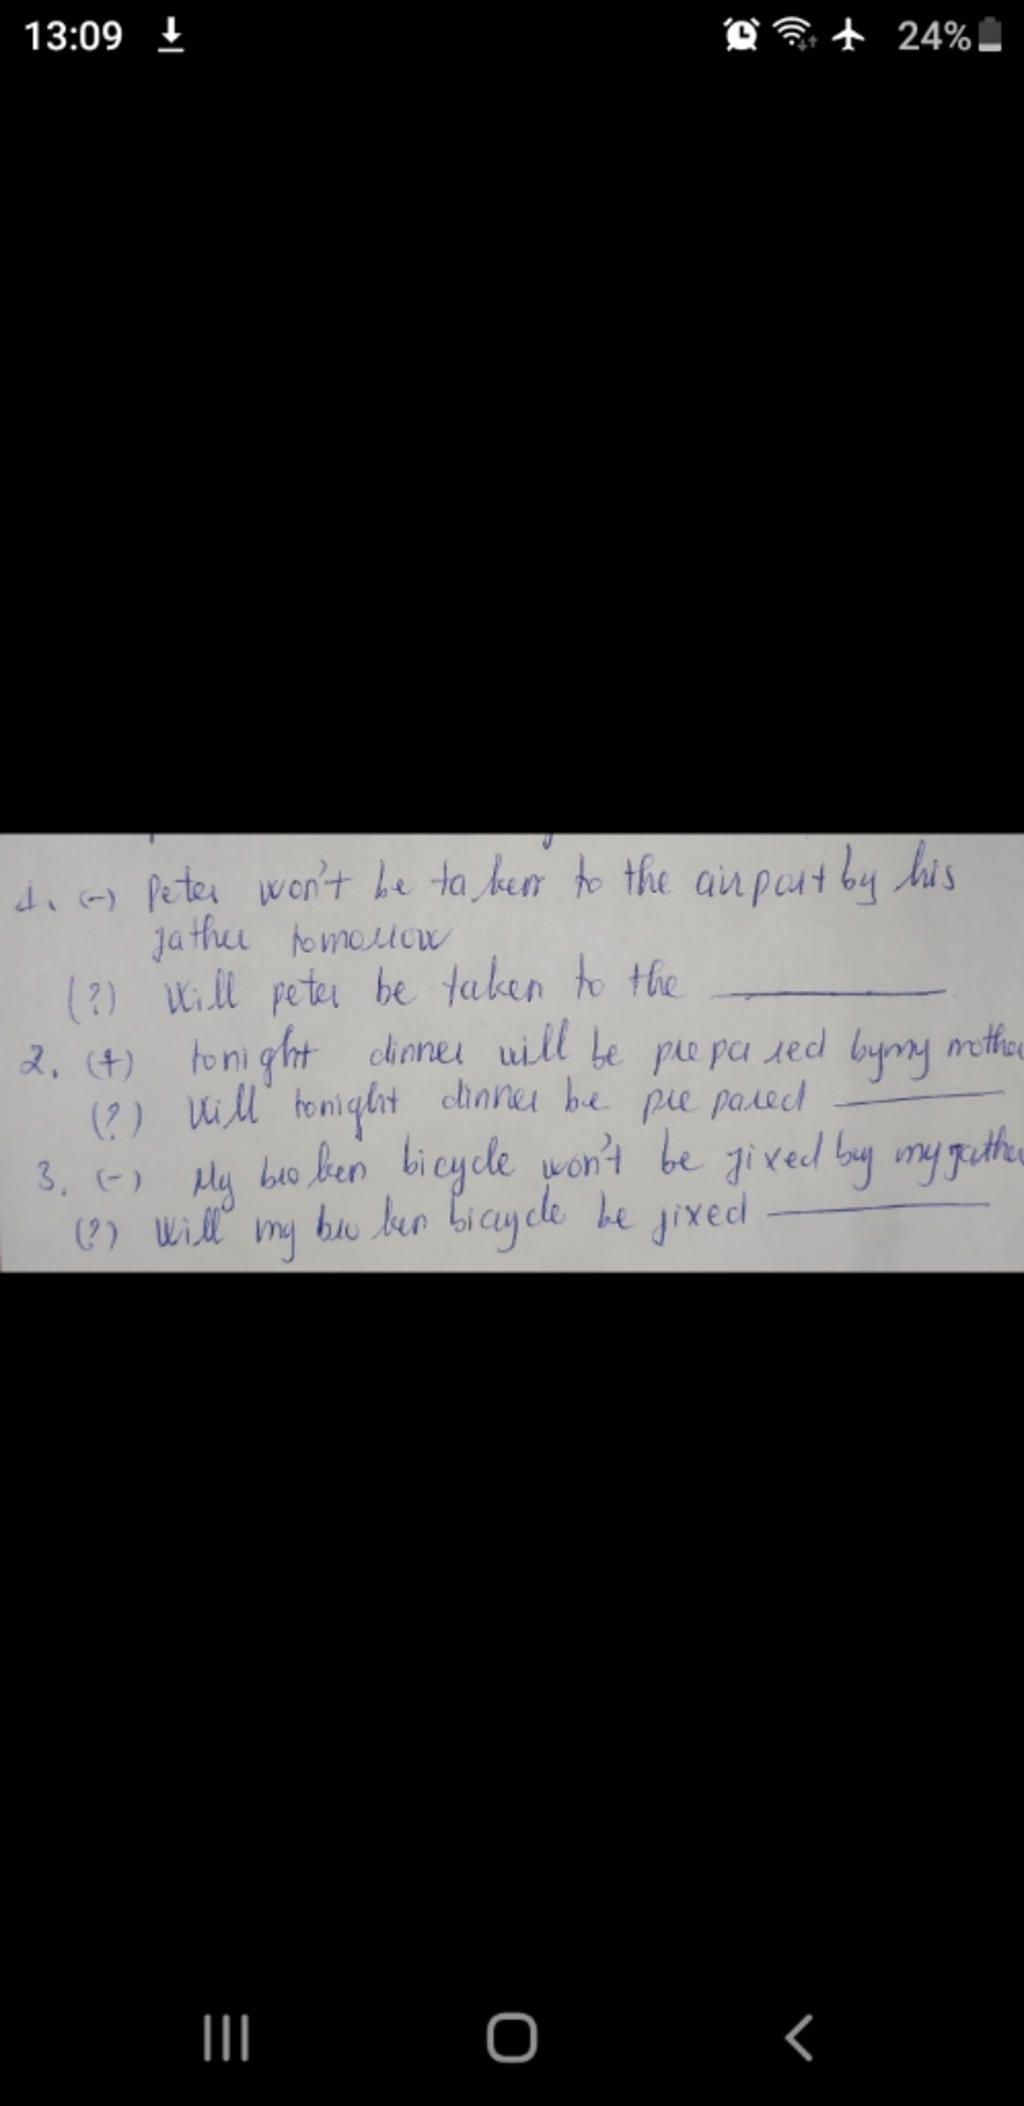 13:09
24%
1. (-) Peter won't be taken to the airport by his
father tomorrow
(?) Will peter be taken to the ________
2. (+) tonight dinner will be prepared by my mother
(?) Will tonight dinner be prepared ________
3. (-) My broken bicycle won't be fixed by my father
(?) Will my broken bicycle be fixed ________